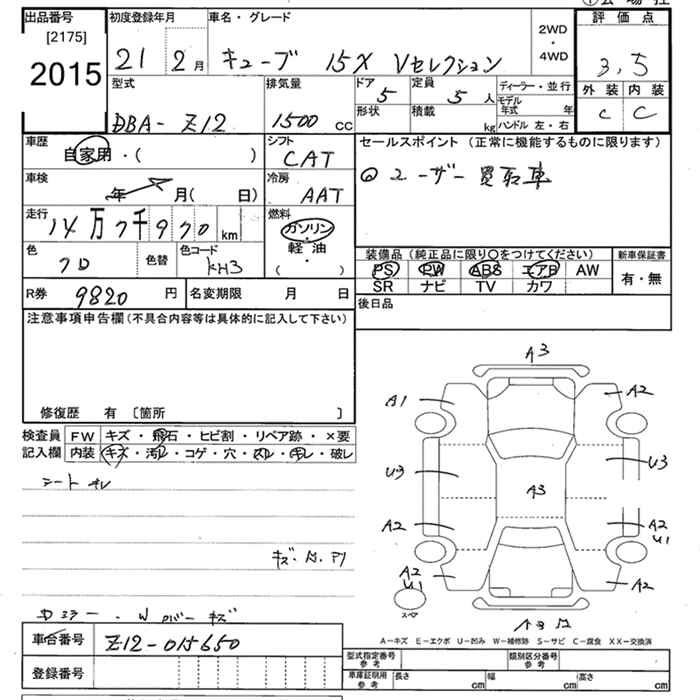 出品番号
[2175]
2015
初度登録年月
21 2月
車名・グレード
キューブ 15X Vセレクション
2WD
・
4WD
評価点
3,5
外装 内装
C C
型式
DBA-Z12
排気量
1500 cc
ドア
5
定員
5人
形状
積載
kg
ディーラー・並行
モデル年式 年
ハンドル 左・右
車歴
自家用・( )
シフト
CAT
セールスポイント (正常に機能するものに限ります)
ユーザー買取車
車検
年 月( 日)
冷房
AAT
走行
14万7千970km
燃料
ガソリン
・
軽油
・
( )
色
クロ
色替
色コード
KH3
装備品(純正品に限り○をつけてください)
PS PW ABS エアB AW
SR ナビ TV カワ
新車保証書
有・無
R券
9820円
名変期限 月 日
後日品
注意事項申告欄(不具合内容等は具体的に記入して下さい)
修復歴 有 〔箇所 〕
検査員
記入欄
FW キズ・飛石・ヒビ割・リペア跡・×要
内装 キズ・汚れ・コゲ・穴・スレ・キレ・破レ
シートスレ
A3
A1
A2
U3
U3
A3
A2
A2
U1
A2
U1
A2
スペア
A3
A-キズ E-エクボ U-凹み W-補修跡 S-サビ C-腐食 XX-交換済
車台番号
Z12-015650
登録番号
型式指定番号
参考
類別区分番号
参考
車庫証明用
参考
長さ cm
幅 cm
高さ cm